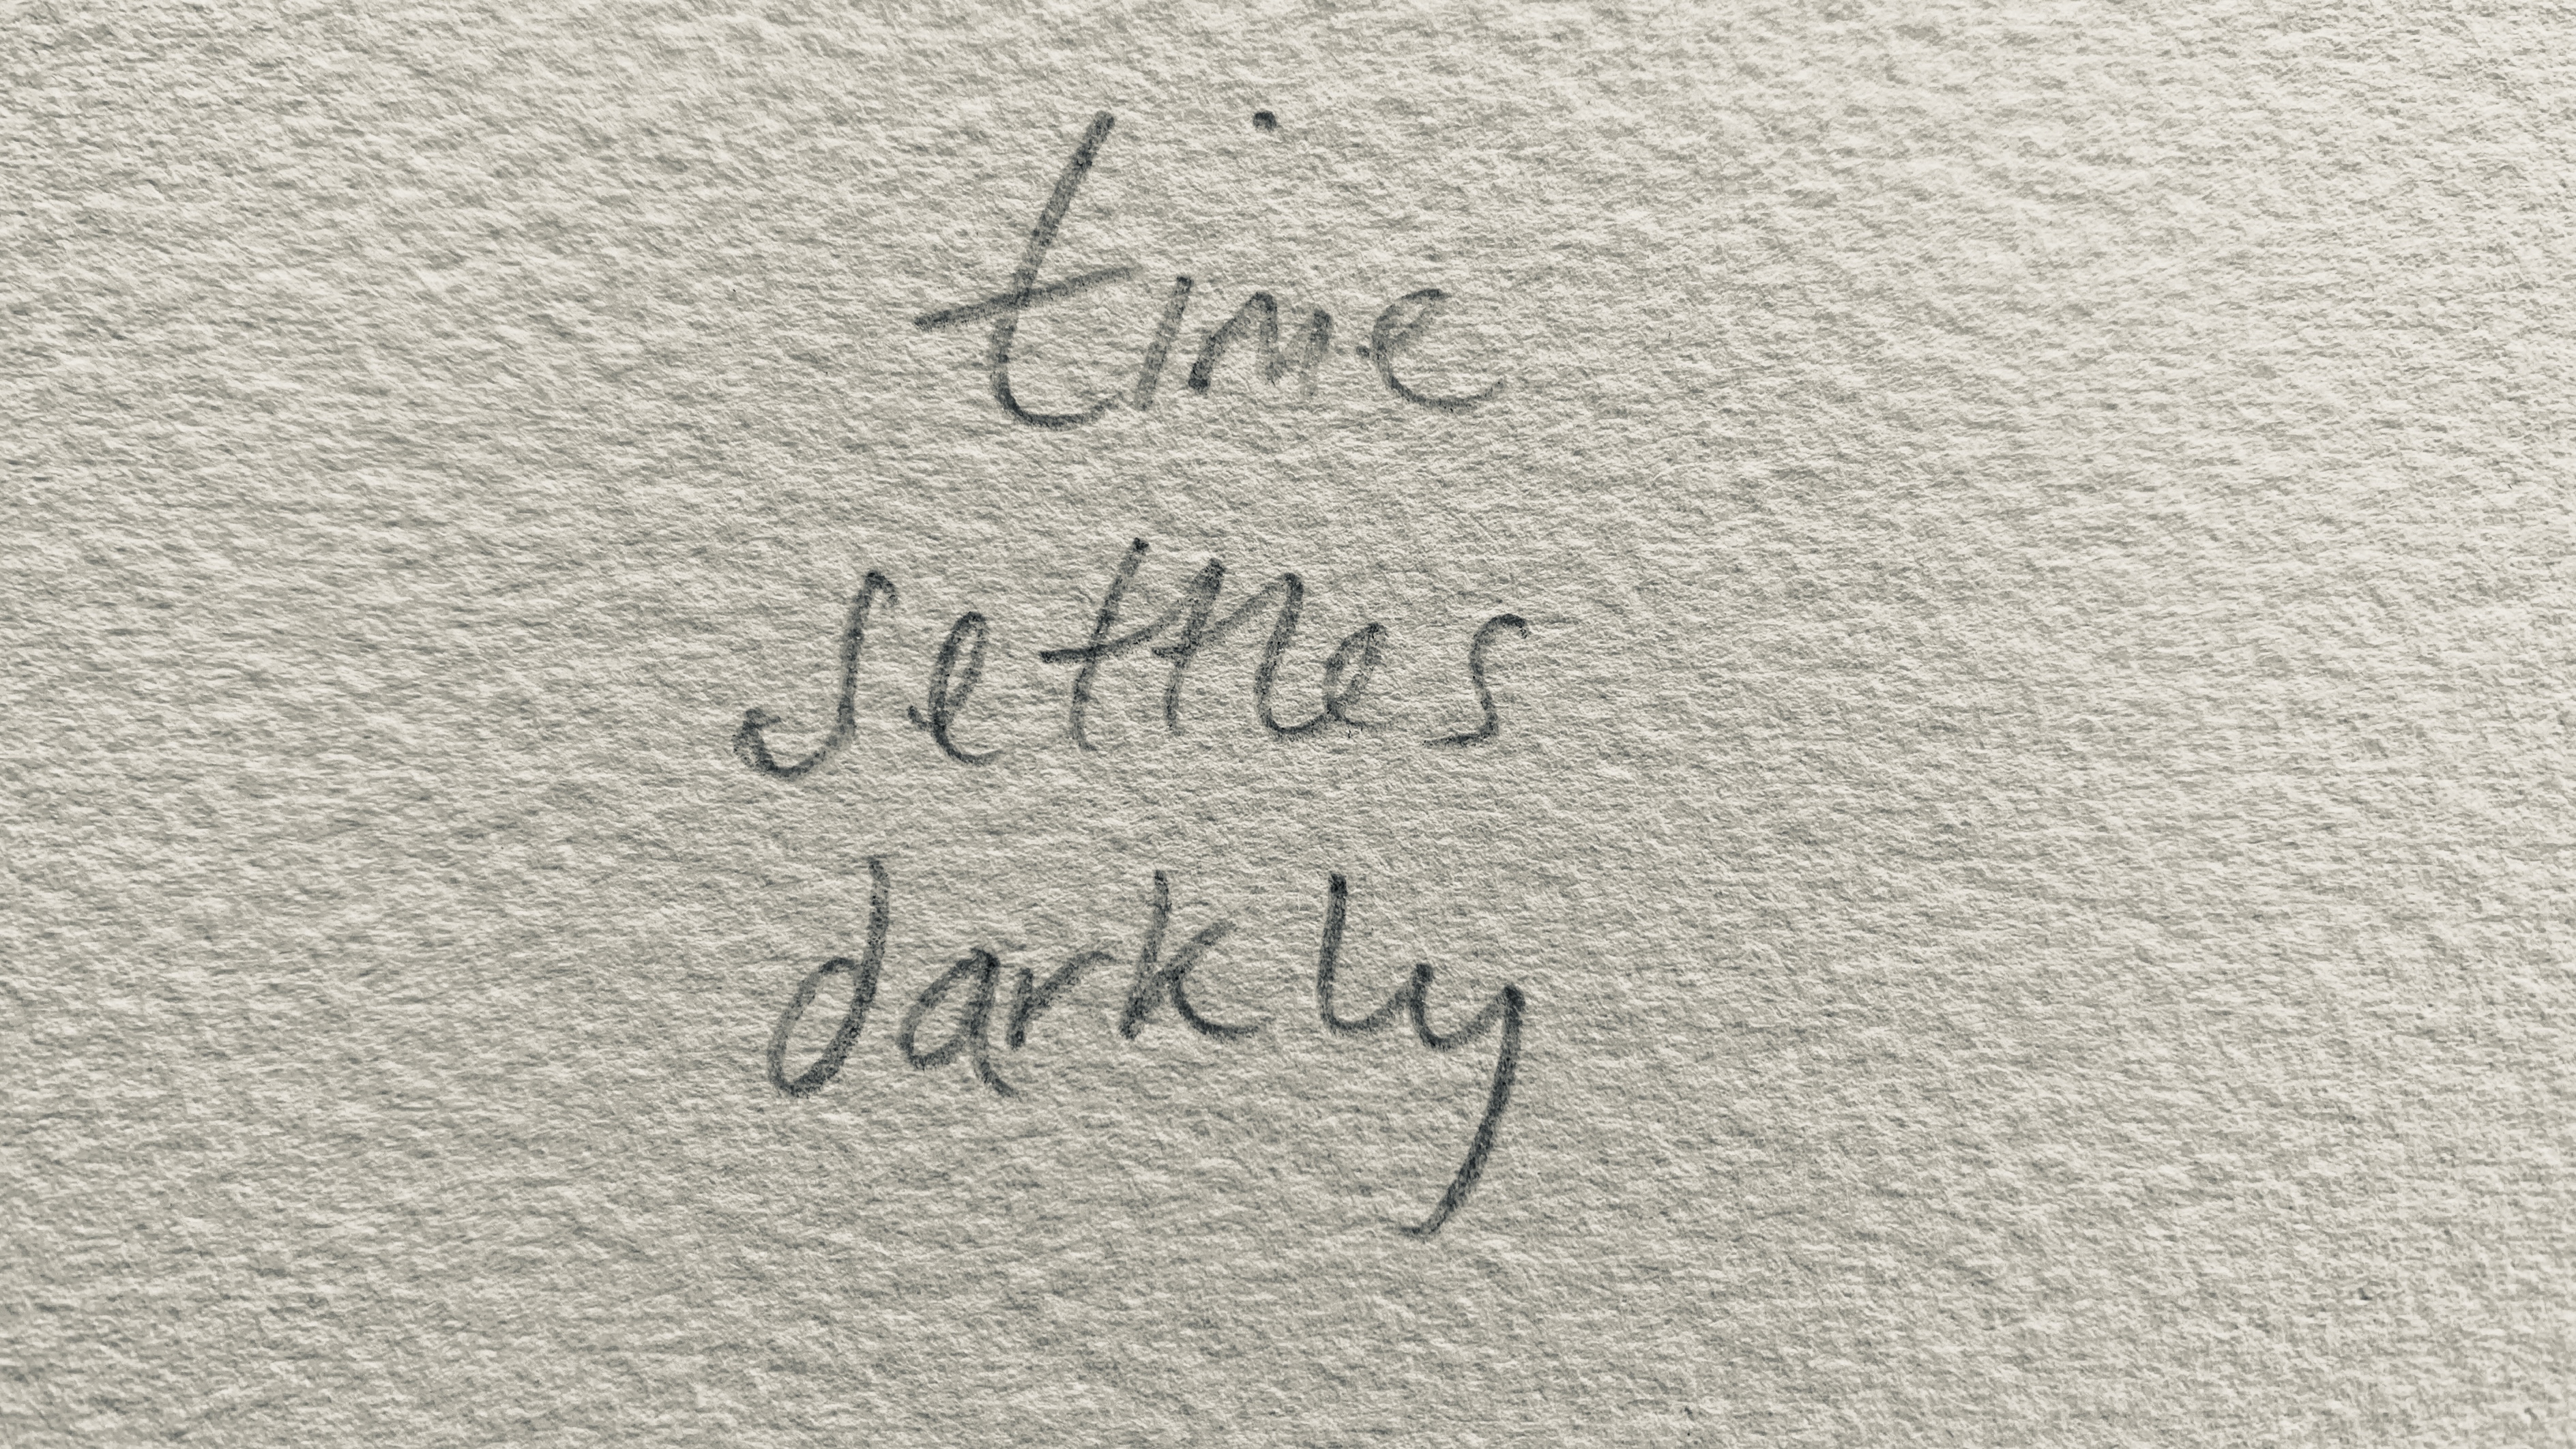 time
settles
darkly